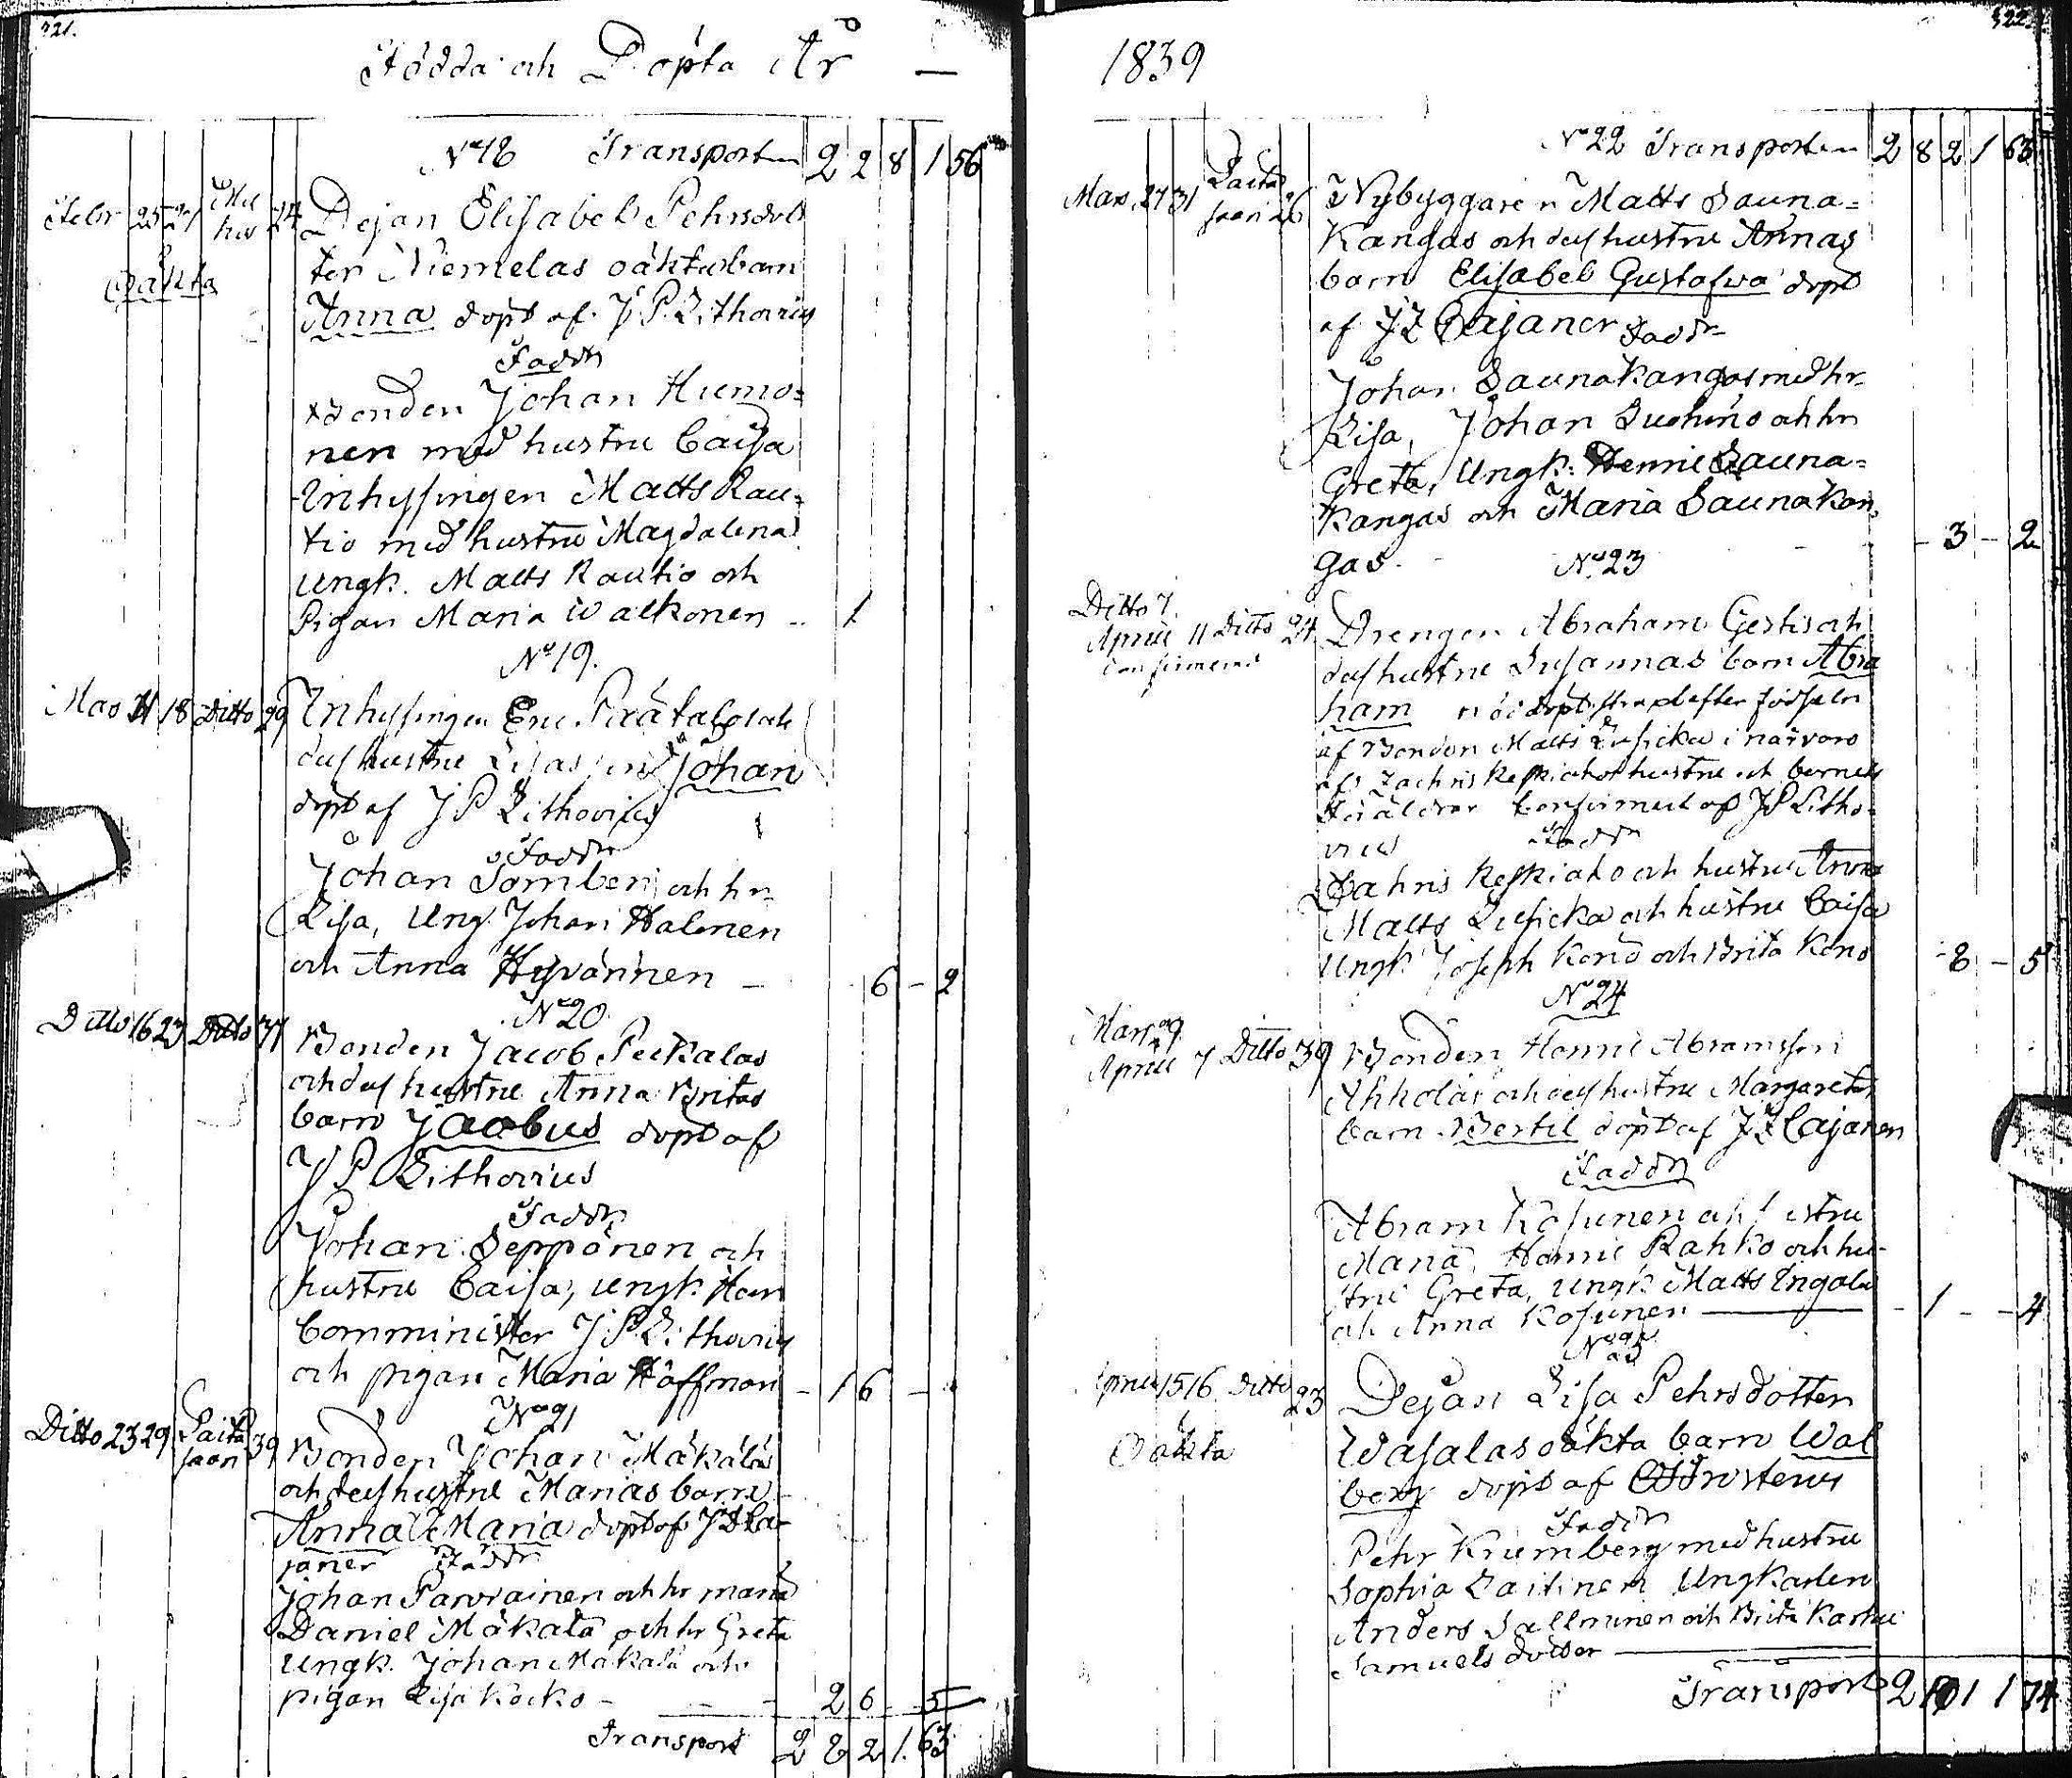 321.
Födda och Döpta År —
No 18 Transporten 2 2 8 1 56
Febr 25 27 24 Dejan Elisabet Pehrsdot
ter Niemelas oäkta barn
Oäkta
Anna döpt af J P Lithovius
Faddr
Bonden Johan Huemo=
nen med hustru Caisa
Inhysingen Matts Rau=
tio med hustru Magdalena
Ungk. Matts Rautio och
Pigan Maria Walkonen - 1
No 19.
Mars 11 18 Ditto 29 Inhysingen Eric och
des hustru Lisas Johan
döpt af J P Lithovius
Faddr
Johan Somben och hr
Lisa, Ung. Johan Halonen
och Anna Hyvärinen - 6 - 2
No 20
Ditto 16 23 Ditto 37 Bonden Jacob Peckalas
och des hustru Anna Britas
barn Jacobus döpt af
J P Lithovius
Faddr
Johan Seppänen och
hustru Caisa, Ungk. Herr
Comminister J P Lithovius
och pigan Maria Höffman - 1 6 -
No 21
Ditto 23 29 Paita 39 Bonden Johan Mäkäläs
saari och des hustru Marias barn
Anna Maria döpt af J Z Ca-
janer Faddr
Johan Parviainen och hr Maria
Daniel Mäkälä och hr Greta
Ungk. Johan Mäkälä och
pigan Lisa Kocko - 2 6 - 5
Transport 2 8 2 1. 63
322
1839
No 22 Transporten 2 8 2 1 63
Mars 27 31 Paita 26 Nybyggaren Matts Sauna=
saari kangas och des hustru Annas
barn Elisabet Gustafwa döpt
af J Z Cajaner Faddr
Johan Saunakangas med hr
Lisa, Johan Suhino och hr
Greta, Ungk. Henric Sauna=
kangas och Maria Saunakan=
gas. - 3 - 2
No 23
Ditto 7
April 11 Ditto 24 Drengen Abraham Gertis och
Confirmerad des hustru Susannas barn Abra
ham nöddöpt strax efter födseln
af Bonden Matts i närvaro
af Zachris Keskiaho hustru och barnets
Föräldrar Confirmert af J P Litho-
vius Faddr
Zachris Keskiaho och hustru Anna
Matts och hustru Caisa
Ungk. Joseph Kono och Brita Kono - 8 - 5
No 24
Mars 29
April 7 Ditto 39 Bonden Henric Abramsson
Ahholas och des hustru Margaretas
barn Bertil döpt af J Z Cajanen
Faddr
Abram Kosunen och hustru
Maria, Henric Rahko och hu-
stru Greta, Ungk. Matts Ingalu
och Anna Kosunen - 1 - - 4
No 25
April 15 16 Ditto 23 Dejan Lisa Pehrsdotter
Oäkta Wasalas oäkta barn Wal
berg döpt af
Faddr
Pehr Krumberg med hustru
Sophia Laitinen Ungkarlen
Anders Sallminen och Brita Karhu
Samuels dotter
Transport 2 1 1 74